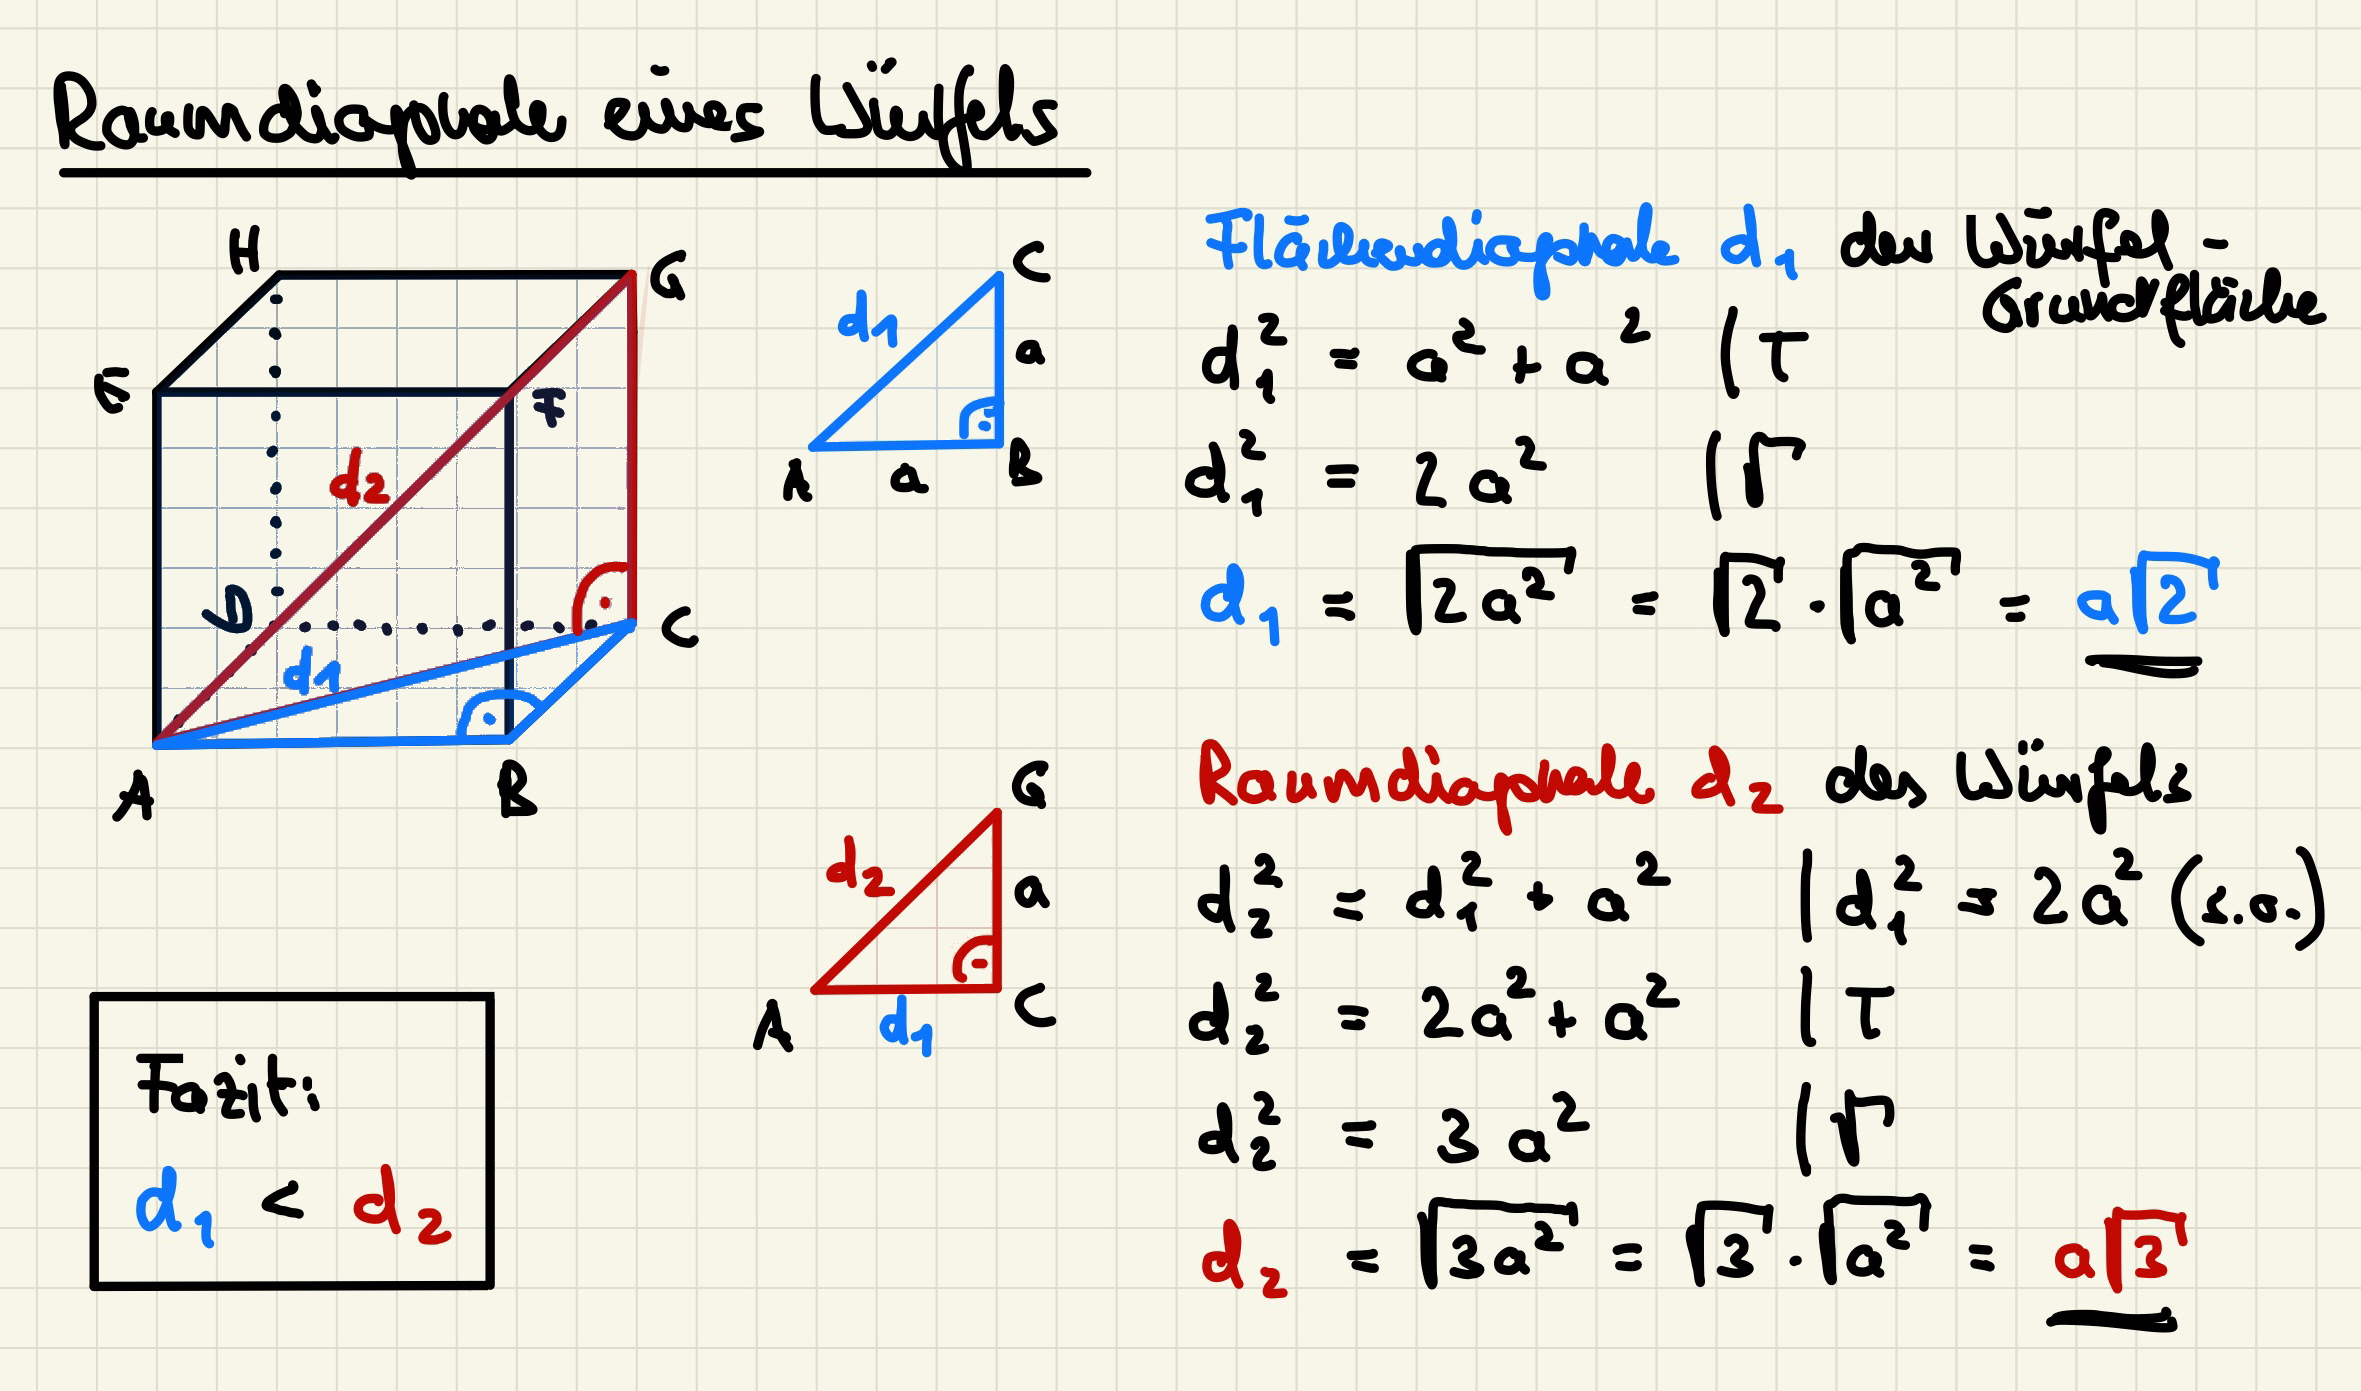 Raumdiagonale eines Würfels
H
G
E
F
d2
D
C
d1
A
B
C
d1
a
A
a
B
Flächendiagonale d₁ der Würfel-
Grundfläche
d₁² = a² + a² | T
d₁² = 2a² | √
d₁ = √2a² = √2 · √a² = a√2
G
d2
a
A
d1
C
Raumdiagonale d₂ des Würfels
d₂² = d₁² + a² | d₁² = 2a² (s.o.)
d₂² = 2a² + a² | T
d₂² = 3a² | √
d₂ = √3a² = √3 · √a² = a√3
Fazit:
d₁ < d₂